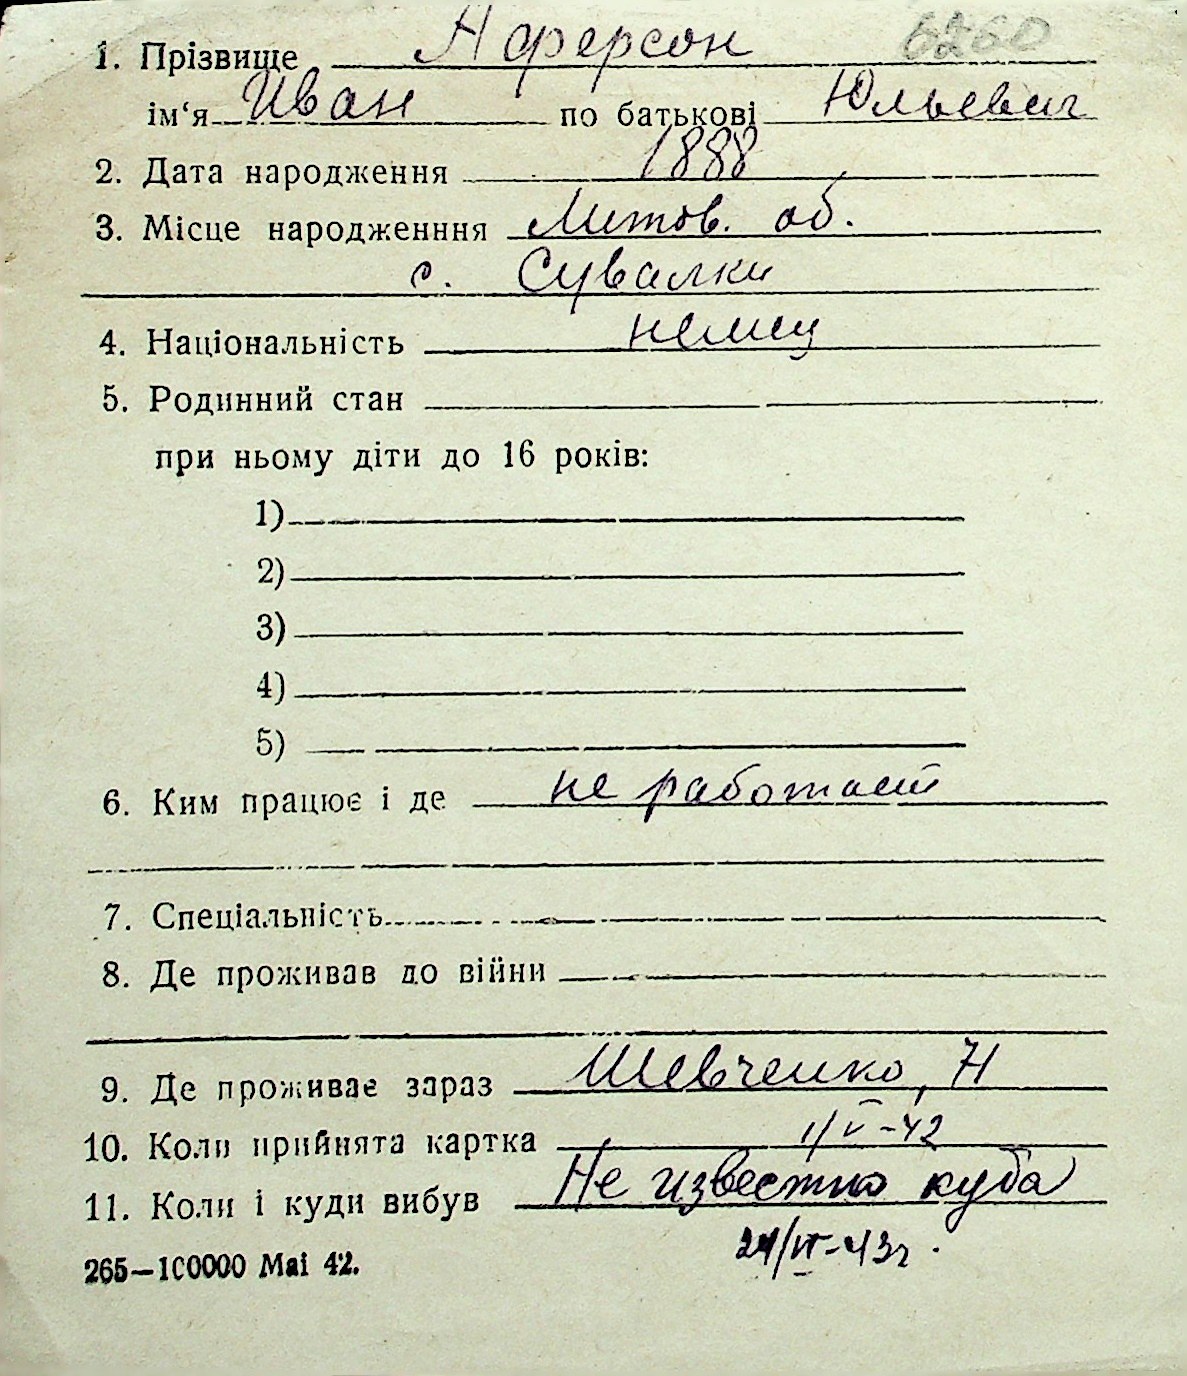 6260
1. Прізвище Аферсон
ім‘я Иван по батькові Юльевич
2. Дата народження 1888
3. Місце народженння Литов. об.
с. Сувалки
4. Національність немец
5. Родинний стан
при ньому діти до 16 років:
1)
2)
3)
4)
5)
6. Ким працює і де не работает
7. Спеціальність
8. Де проживав до війни
9. Де проживає зараз Шевченко, 71
10. Коли прийнята картка 1/V-42
11. Коли і куди вибув Не известно куда
24/VI-43г.
265—100000 Mai 42.